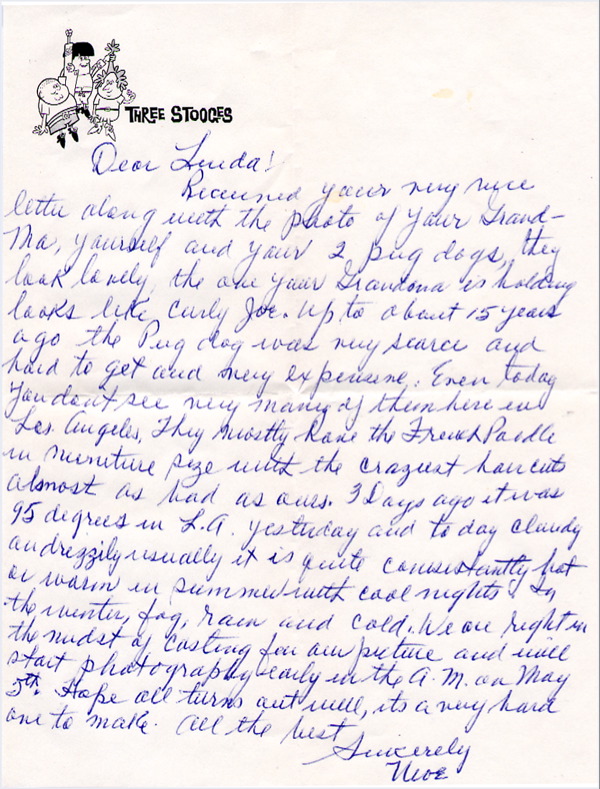 THREE STOOGES
Dear Linda!
Received your very nice
letter along with the photo of your Grand-
Ma, yourself and your 2 pug dogs, they
look lovely, the one your Grandma is holding
looks like Curly Joe. Up to about 15 years
ago the Pug dog was very scarce and
hard to get and very expensive. Even today
you dont see very many of them here in
Los Angeles, They mostly have the French Poodle
in miniture size with the craziest haircuts
almost as bad as ours. 3 Days ago it was
95 degrees in L.A. yesterday and today cloudy
and rizzily usually it is quite consistantly hot
or warm in summer with cool nights. In
the winter, fog, rain and cold. We are right in
the midst of casting for our picture and will
start photography early in the A.M. on May
5th. Hope all turns out well, its a very hard
one to make. All the best
Sincerely
Moe